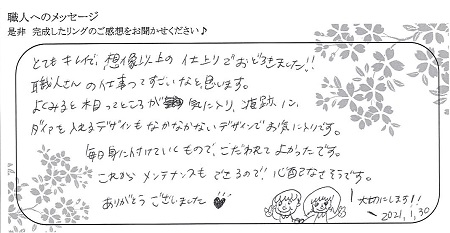 職人へのメッセージ
是非 完成したリングのご感想をお聞かせください♪
とてもキレイで、想像以上の仕上りでおどろきました!!
職人さんの仕事ってすごいなと思います。
よくみると木目ってところが 気に入り、波跡に、
ダイヤを入れるデザインもなかなかないデザインでお気に入りです。
毎日身に付けていくもので、こだわれてよかったです。
これから メンテナンスも できるので! 心配なさそうです。
ありがとう ございました♥
大切にします!!
2021.1.30